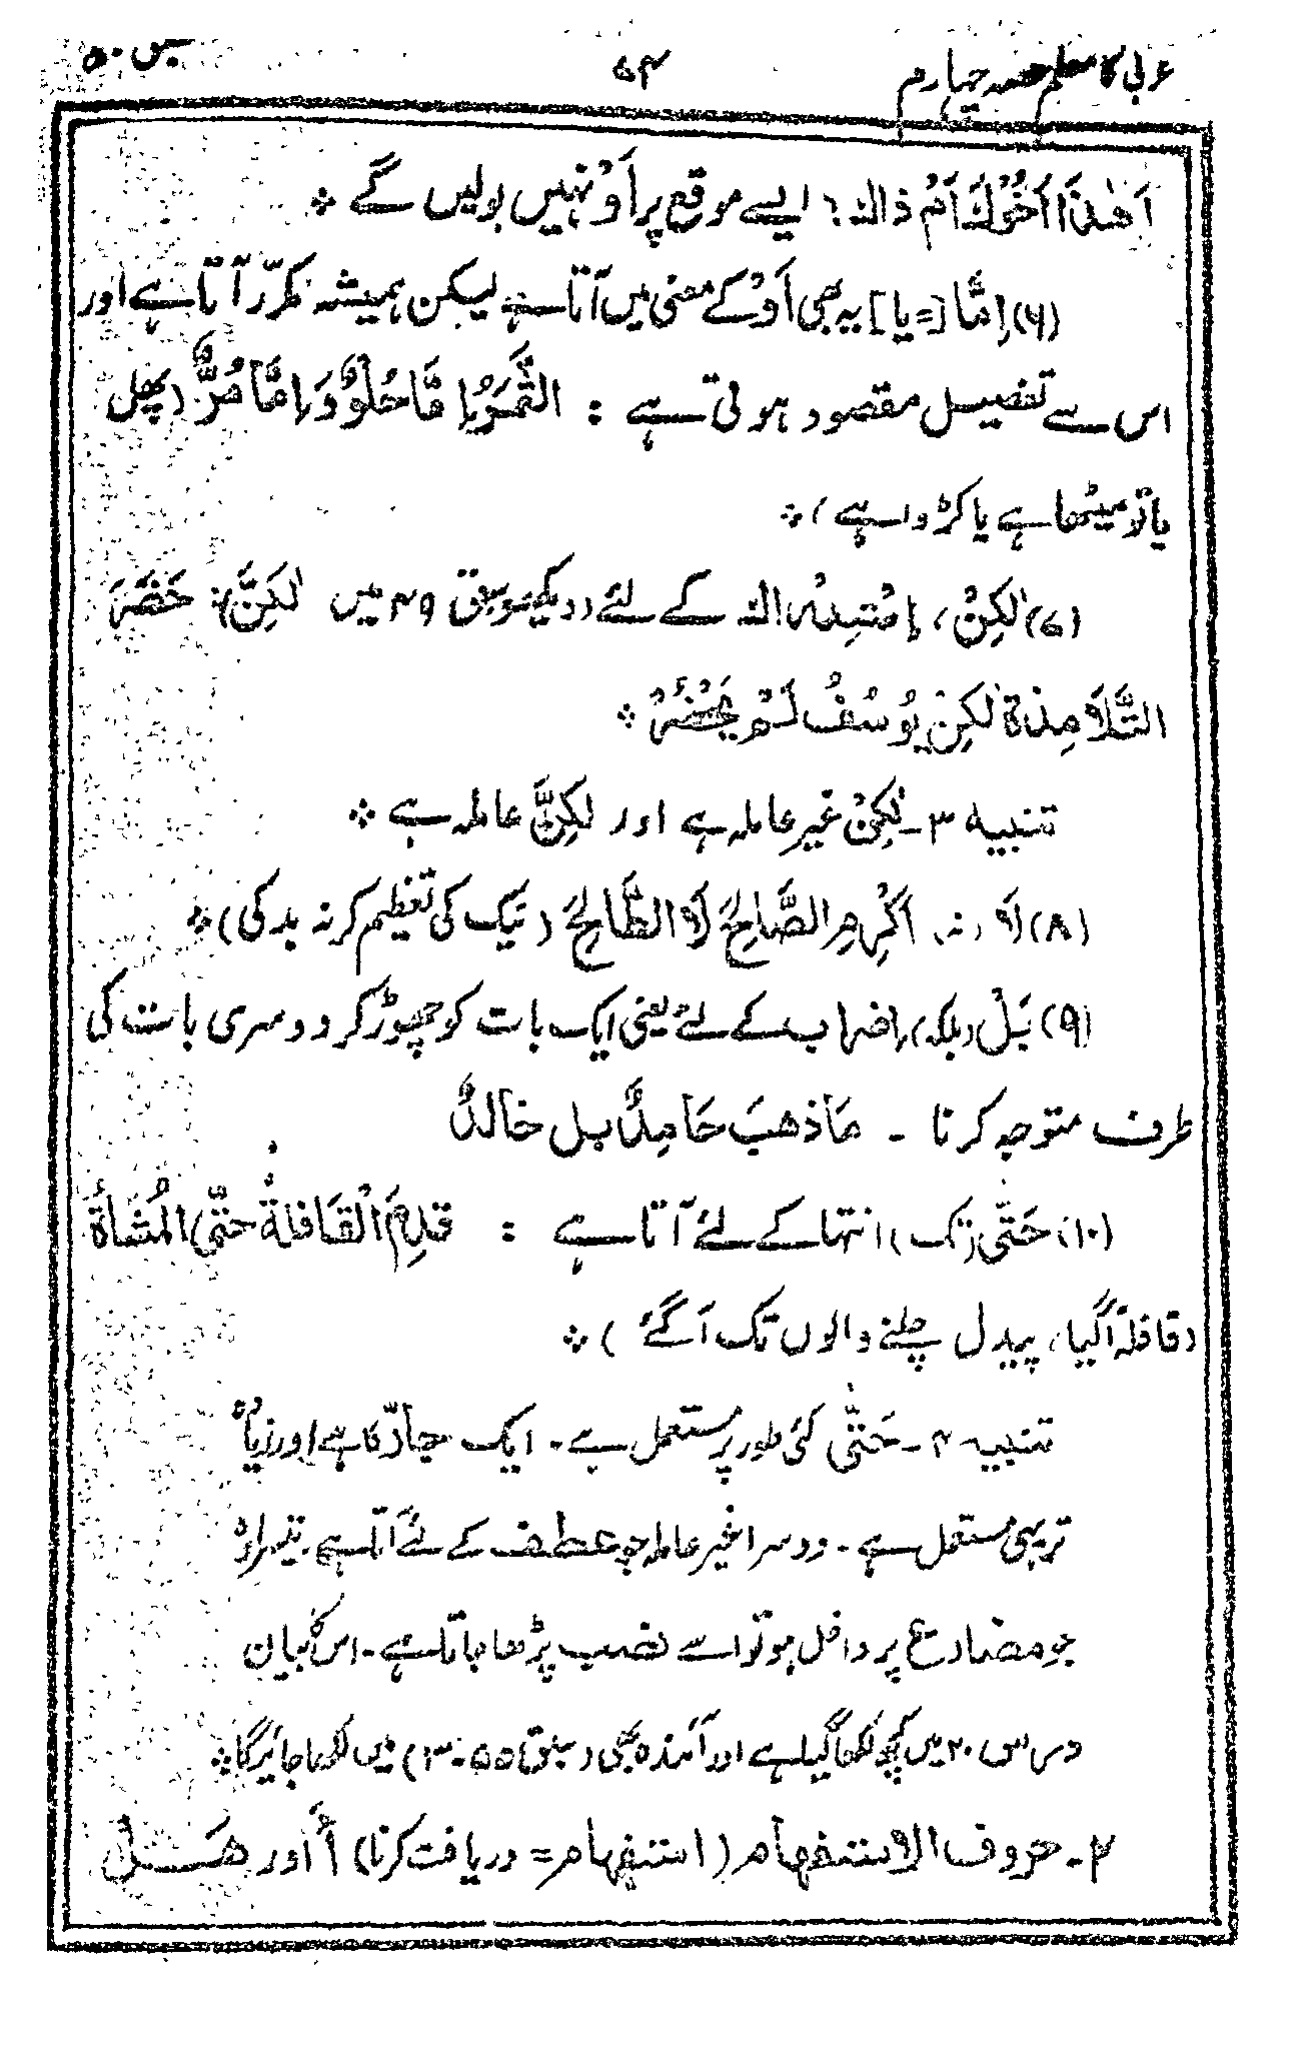 عربی کا معلم حصہ چہارم ۶۴ سبق ۵۰
اَھٰذَا اَخُوْكَ اَمْ ذالك؟ ایسے موقع پر اَوْ نہیں بولیں گے ❊
(۶) اِمَّا [= یا] یہ بھی اَوْ کے معنی میں آتا ہے لیکن ہمیشہ مکرّر آتا ہے اور
اس سے تفصیل مقصود ہوتی ہے : الثَّمَرُ اِمَّا حُلْوٌ وَ اِمَّا مُرٌّ (پھل
یا تو میٹھا ہے یا کڑوا ہے) ❊
(۷) لٰکِنْ، اِسْتِدْراك کے لئے (دیکھو سبق ۴۹ میں لٰکِنَّ): حَضَرَ
التَّلَامِذَةُ لٰکِنْ یُوْسُفُ لَمْ یَحْضُرْ ❊
تنبیہ ۳۔ لٰکِنْ غیر عاملہ ہے اور لٰکِنَّ عاملہ ہے ❊
(۸) لَا (نہ) اَکْرِمِ الصَّالِحَ لَا الطَّالِحَ (نیک کی تعظیم کر نہ بد کی) ❊
(۹) بَلْ (بلکہ) اِضراب کے لئے یعنی ایک بات کو چھوڑ کر دوسری بات کی
طرف متوجہ کرنا ۔ مَا ذھبَ حَامِدٌ بل خالدٌ
(۱۰) حَتّٰی (تک) انتہا کے لئے آتا ہے : قدِمَ الْقَافلةُ حتّی المُشَاةُ
(قافلہ آگیا، پیدل چلنے والوں تک آگئے) ❊
تنبیہ ۴۔ حَتّٰی کئی طور پر مستعمل ہے۔ ایک جارّہ کا ہے اور زیادہ
تر یہی مستعمل ہے۔ دوسرا غیر عاملہ جو عطف کے لئے آتا ہے، تیسرا وہ
جو مضارع پر داخل ہو تو اسے نصب پڑھا جاتا ہے۔ اس کا بیان
درس ۲۰ میں کچھ لکھا گیا ہے اور آئندہ بھی (سبق ۵۵-۳) میں لکھا جائیگا ❊
۲۔ حروف الاستفھام (استفہام = دریافت کرنا) أَ اور ھَلْ